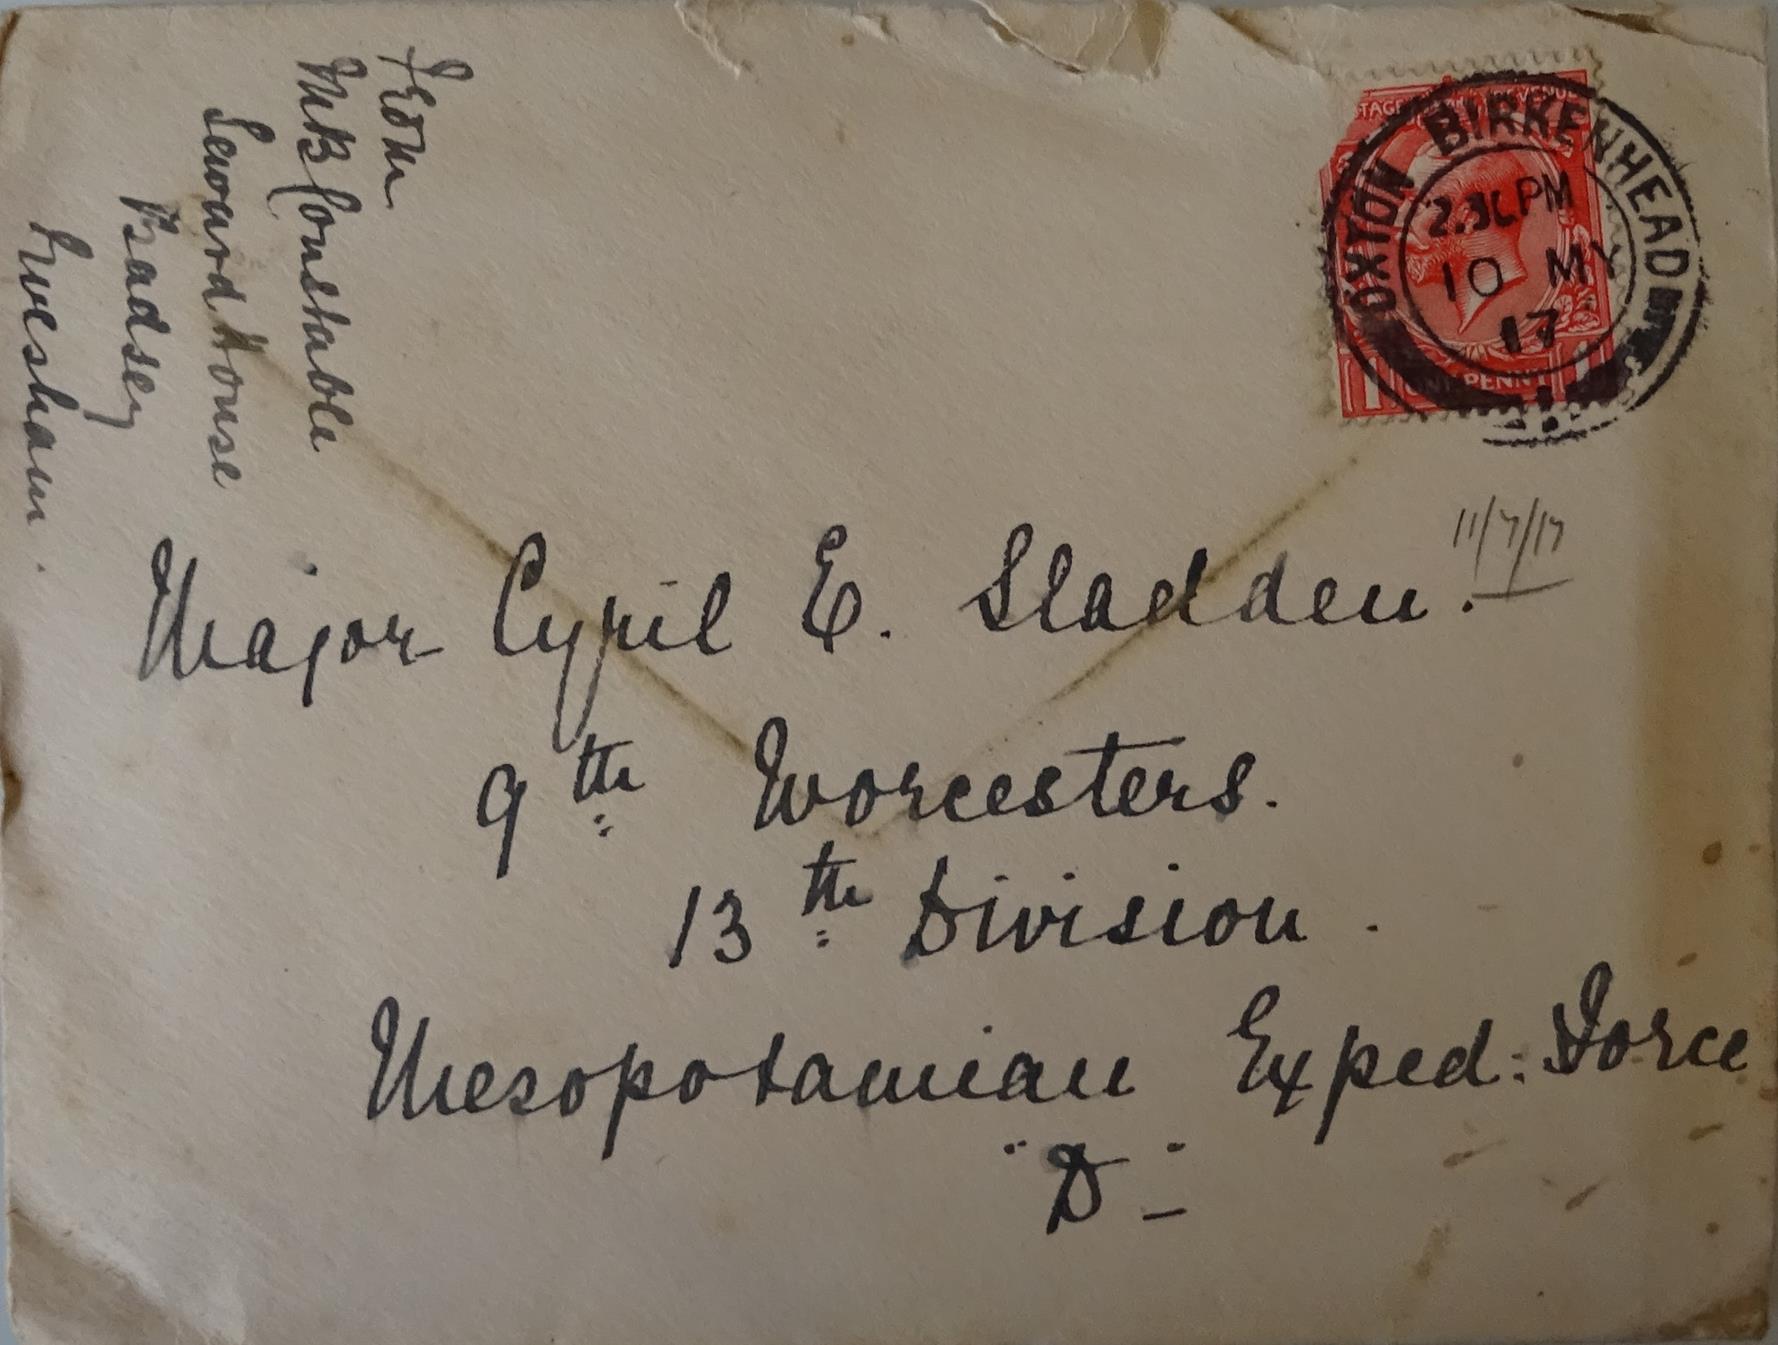 From
MB Constable
Seward House
Badsey
Evesham.
POSTAGE REVENUE
OXTON BIRKENHEAD
2.30 PM
10 MY
17
1 ONE PENNY 1
11/7/17
Major Cyril E. Sladden.
9th Worcesters.
13th Division.
Mesopotamian Exped: Force
"D"